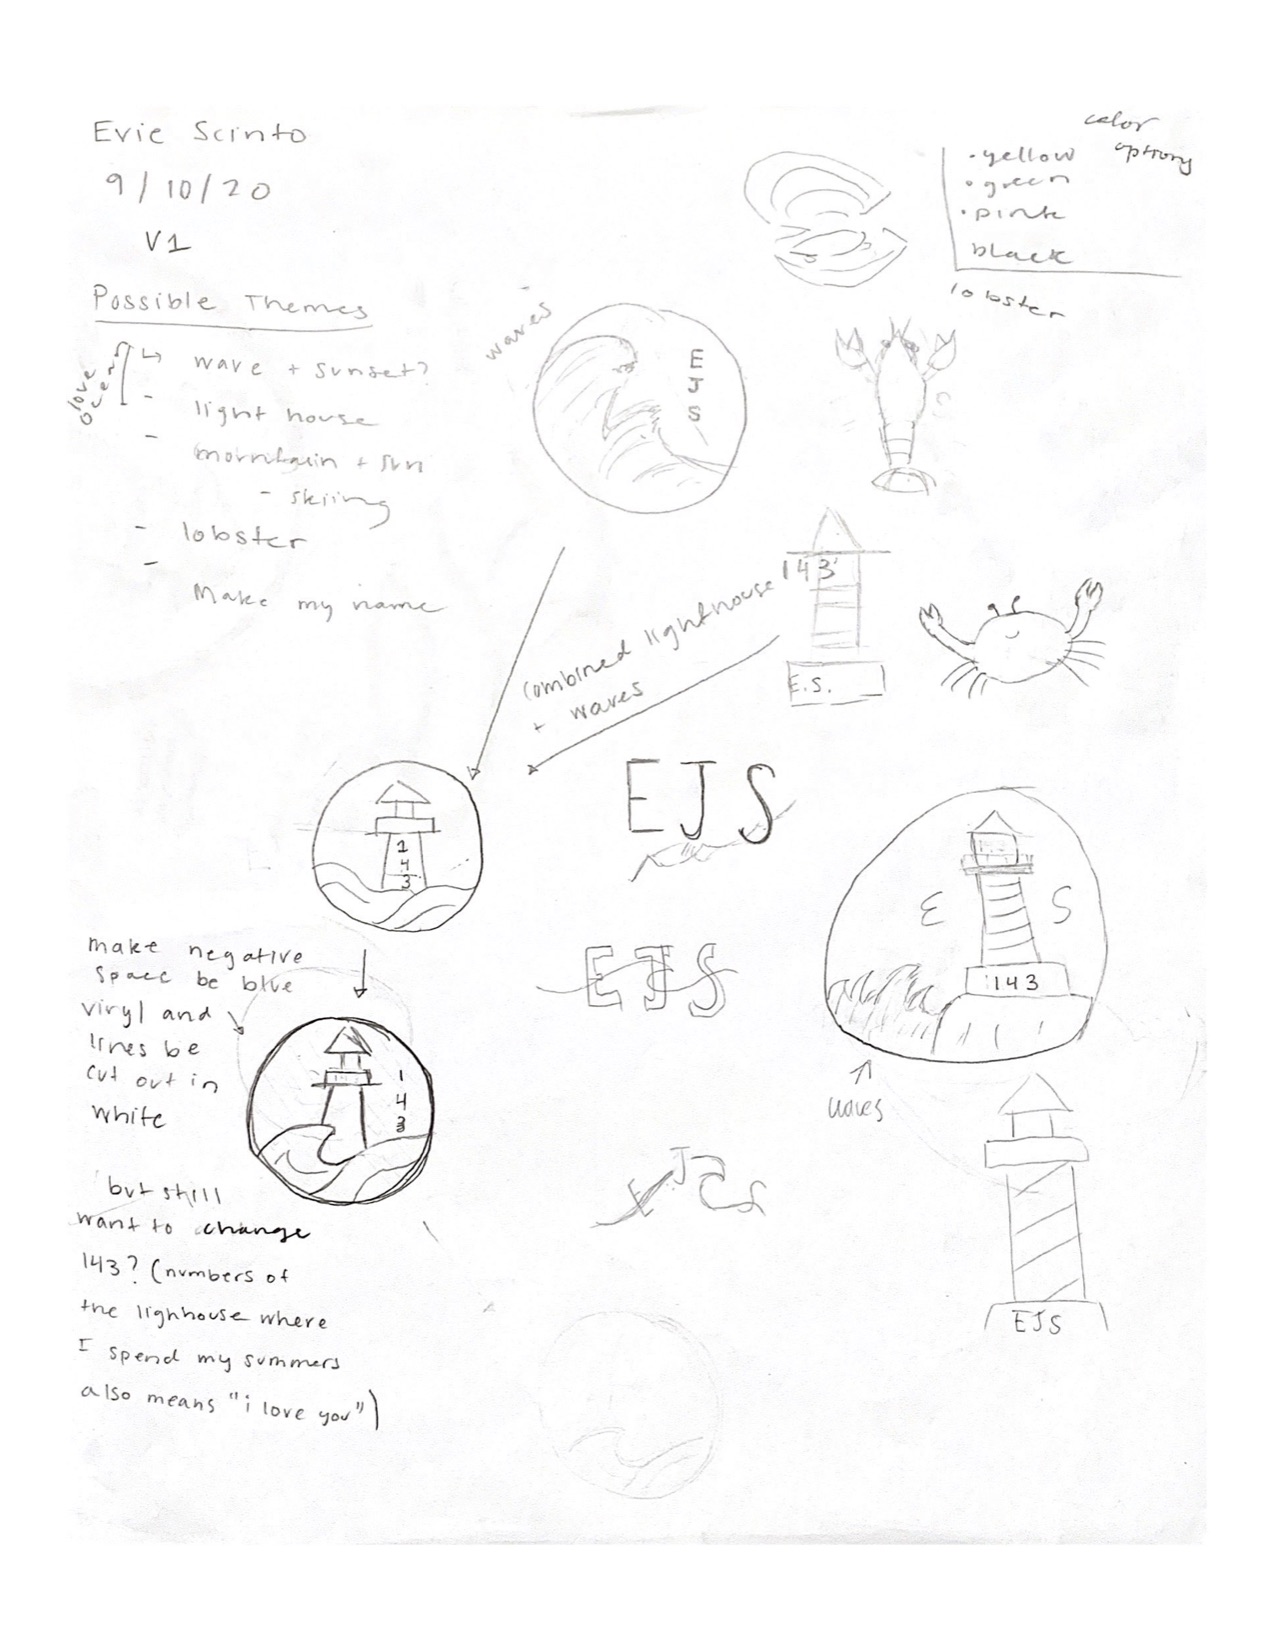 Evie Scinto
9/10/20
V1
Possible Themes
love ocean
wave + sunset?
- light house
- mountain + sun
- skiing
- lobster
- Make my name
color options
• yellow
• green
• pink
black
lobster
waves
E
J
S
143'
E.S.
combined lighthouse
+ waves
1
4
3
EJS
E S
143
waves
EJS
make negative
space be blue
vinyl and
lines be
cut out in
white
1
4
3
EJS
EJS
but still
want to change
143? (numbers of
the lighhouse where
I spend my summers
also means "i love you")